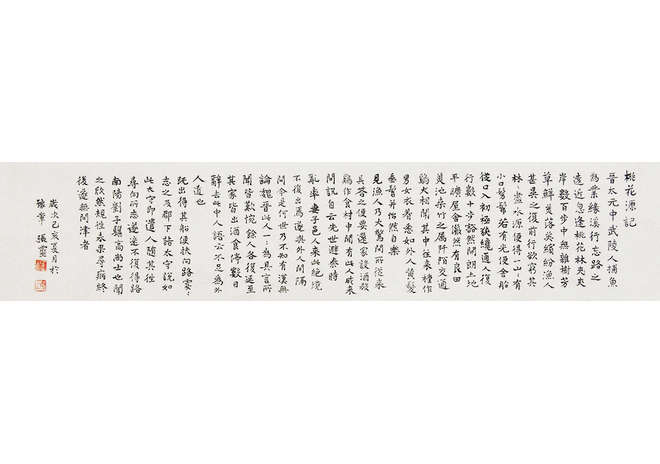 桃花源記
晉太元中武陵人捕魚
為業緣溪行忘路之
遠近忽逢桃花林夾
岸數百步中無雜樹芳
草鮮美落英繽紛漁人
甚異之復前行欲窮其
林〻盡水源便得一山〻有
小口髣髴若有光便舍船
從口入初極狹纔通人復
行數十步豁然開朗土地
平曠屋舍儼然有良田
美池桑竹之屬阡陌交通
雞犬相聞其中往來種作
男女衣著悉如外人黃髮
垂髫並怡然自樂
見漁人乃大驚問所從來
具答之便要還家設酒殺
雞作食村中聞有此人咸來
問訊自云先世避秦時
亂率妻子邑人來此絕境
不復出焉遂與外人間隔
問今是何世乃不知有漢無
論魏晉此人一〻為具言所
聞皆歎惋餘人各復延至
其家皆出酒食停數日
辭去此中人語云不足為外
人道也
既出得其船便扶向路處〻
志之及郡下詣太守說如
此太守即遣人隨其往
尋向所志遂迷不復得路
南陽劉子驥高尚士也聞
之欣然規往未果尋病終
後遂無問津者
歲次己亥夏月於
豫章 張靈